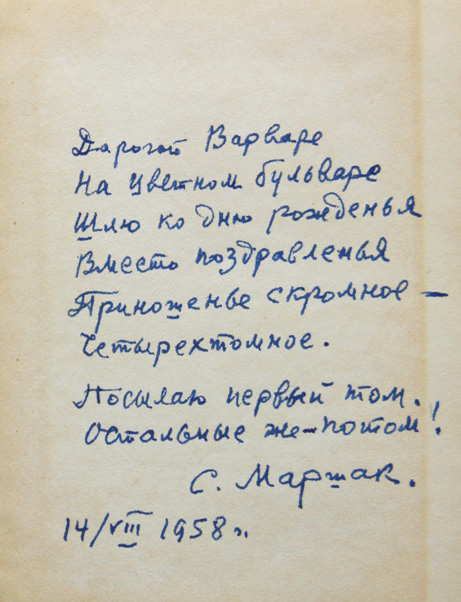 Дорогой Варваре
На Цветном бульваре
Шлю ко дню рожденья
Вместо поздравленья
Приношенье скромное —
Четырехтомное.
Посылаю первый том.
Остальные же – потом!
С. Маршак.
14/VIII 1958 г.